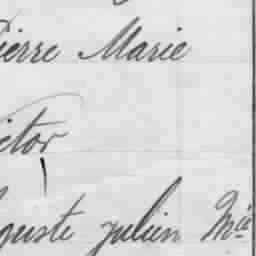 Pierre Marie
ictor
guste julien Mie